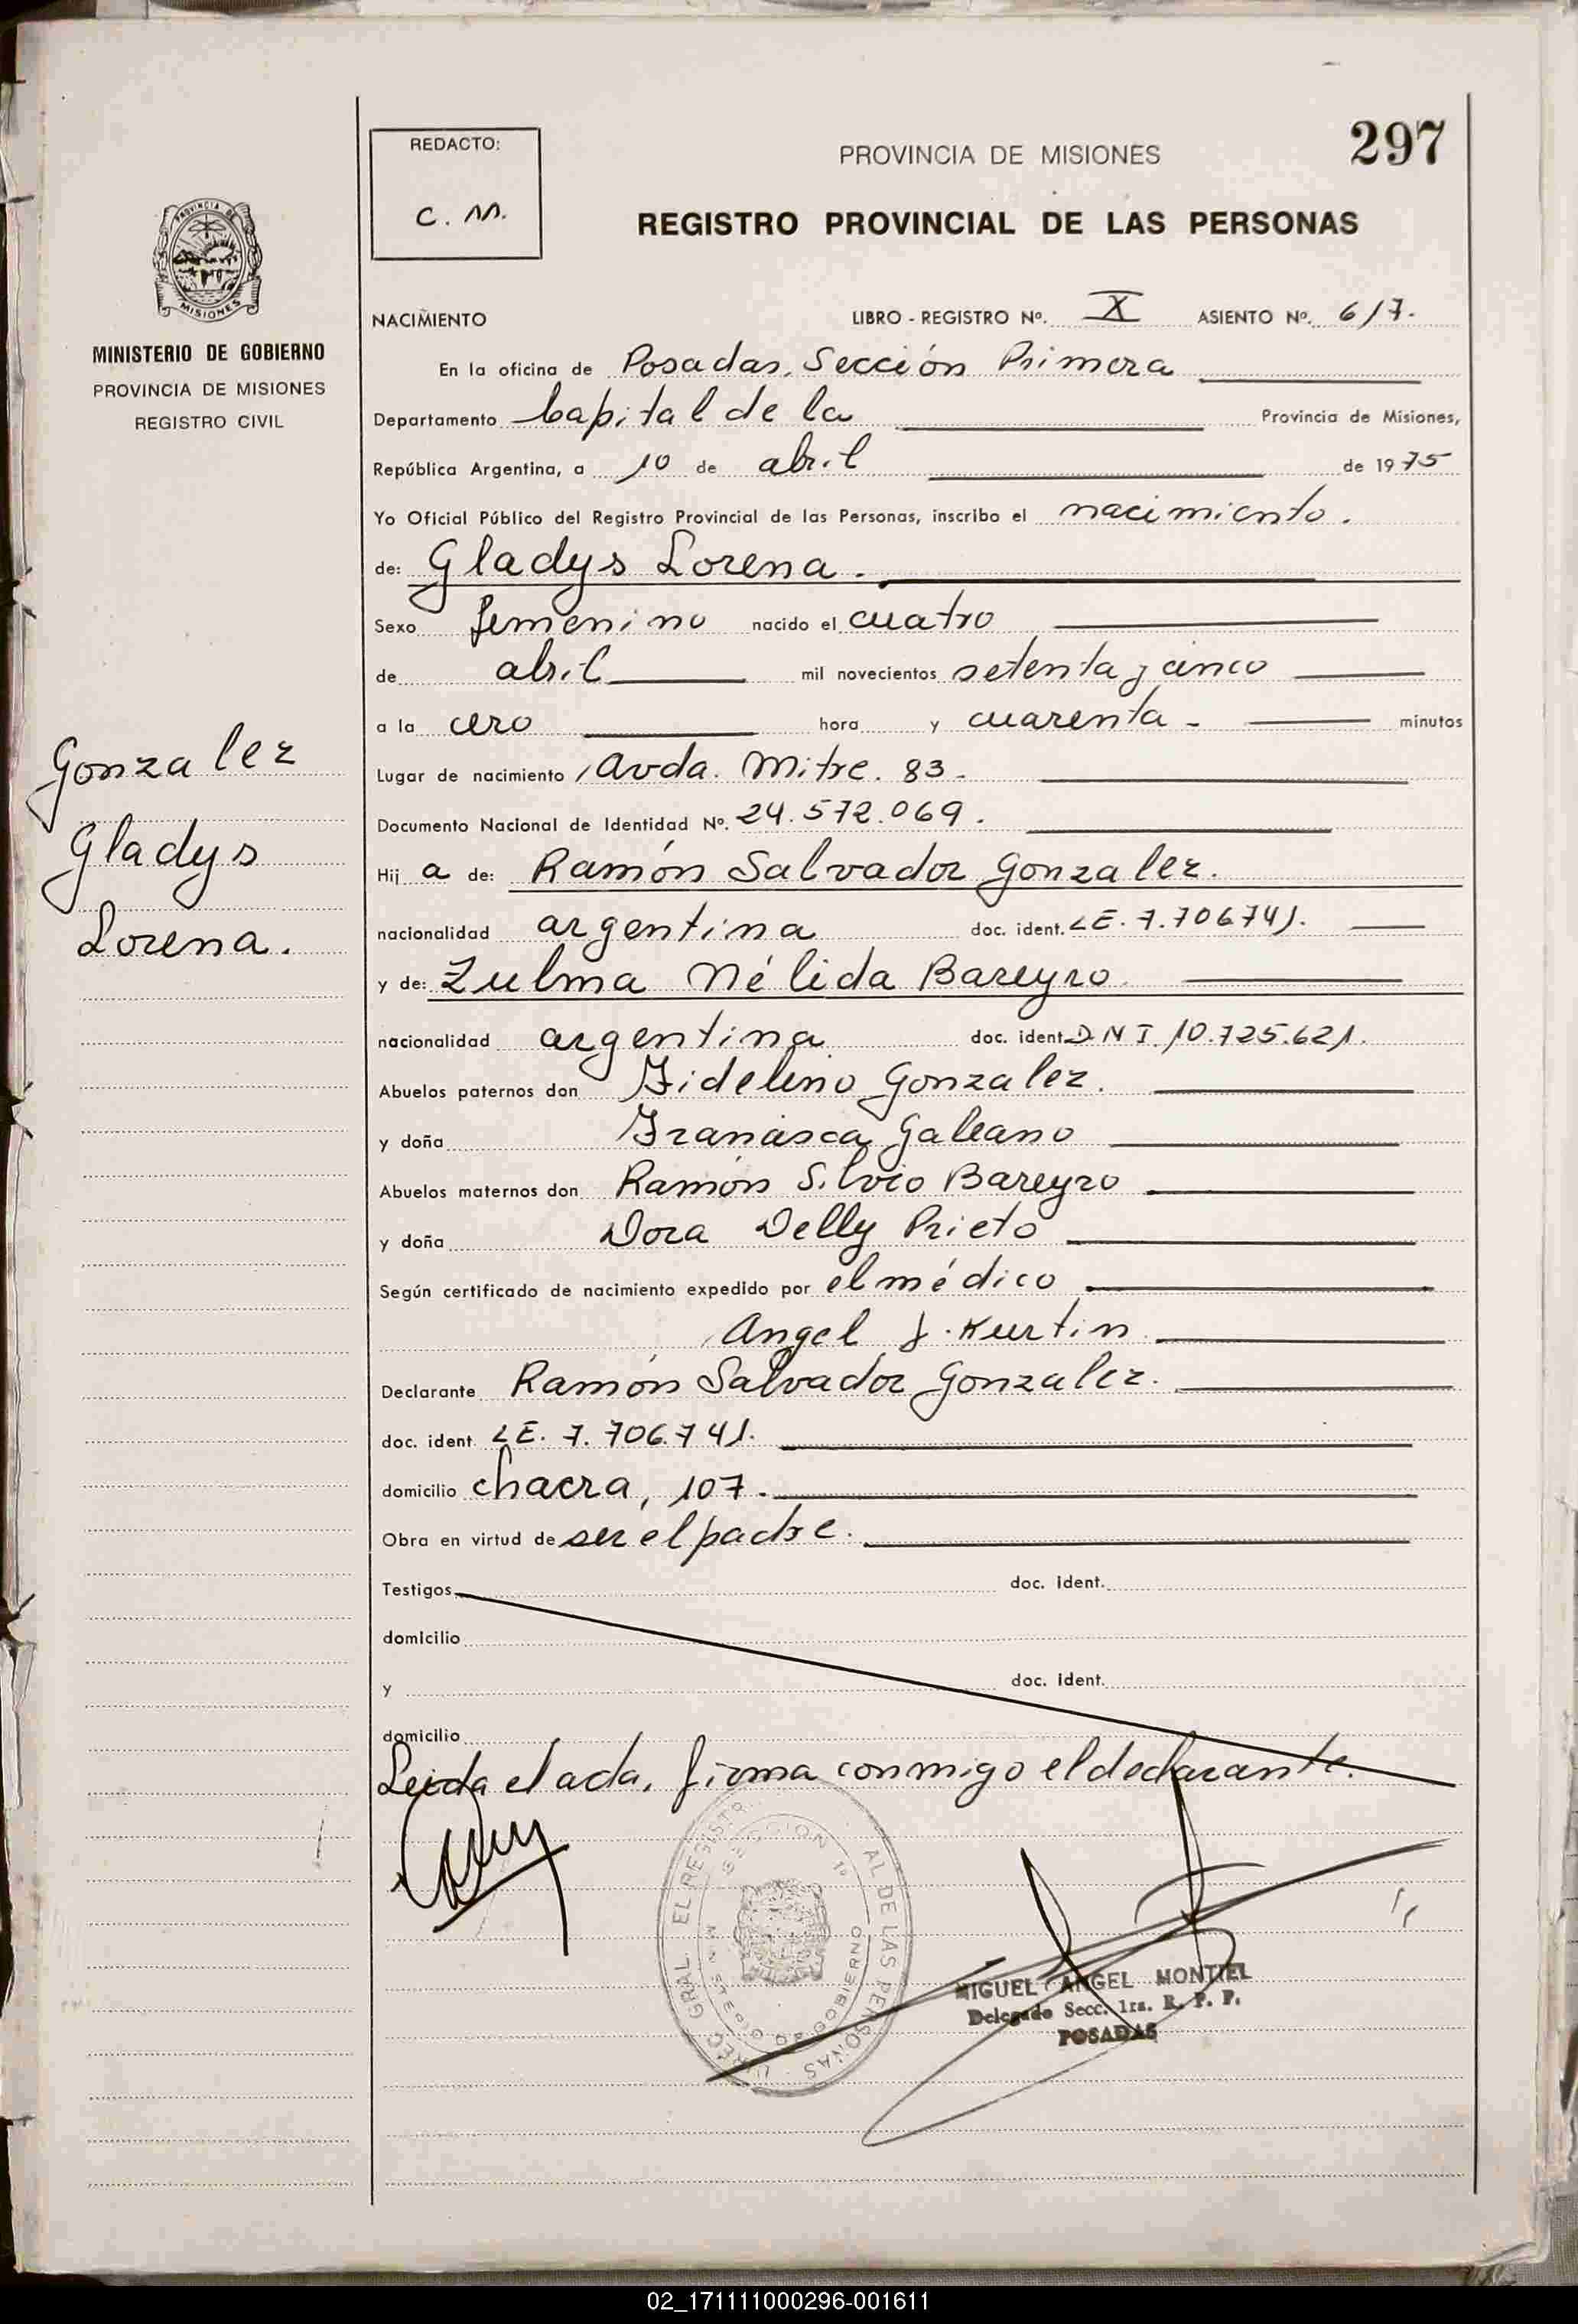 297
REDACTO:
C. M.
PROVINCIA DE MISIONES
REGISTRO PROVINCIAL DE LAS PERSONAS
PROVINCIA DE
MISIONES
MINISTERIO DE GOBIERNO
PROVINCIA DE MISIONES
REGISTRO CIVIL
NACIMIENTO LIBRO - REGISTRO Nº. X ASIENTO Nº. 617.
En la oficina de Posadas, Sección Primera
Departamento Capital de la Provincia de Misiones,
República Argentina, a 10 de abril de 1975
Yo Oficial Público del Registro Provincial de las Personas, inscribo el nacimiento.
de: Gladys Lorena.
Sexo femenino nacido el cuatro
de abril mil novecientos setenta y cinco
a la cero hora y cuarenta - minutos
Lugar de nacimiento Avda. Mitre. 83-
Documento Nacional de Identidad Nº. 24.572.069.
Hij a de: Ramón Salvador Gonzalez.
nacionalidad argentina doc. ident. LE. 7.706741.
y de: Zulma Nélida Bareyro
nacionalidad argentina doc. ident. D.N I. 10.725.621.
Abuelos paternos don Fidelino Gonzalez.
y doña Francisca Galeano
Abuelos maternos don Ramón Silvio Bareyro
y doña Dora Delly Prieto
Según certificado de nacimiento expedido por el médico
Angel J. Kurtin
Declarante Ramón Salvador Gonzalez.
doc. ident. LE. 7.706.741.
domicilio chacra, 107.
Obra en virtud de ser el padre.
Testigos doc. ident.
domicilio
y doc. ident.
domicilio
Leida el acta, firma conmigo el declarante.
Gonzalez
Gladys
Lorena.
SECCION 1ª
MINISTERIO DE GOBIERNO
MIGUEL ANGEL MONTIEL
Delegado Secc. 1ra. R. P. P.
POSADAS
02_171111000296-001611